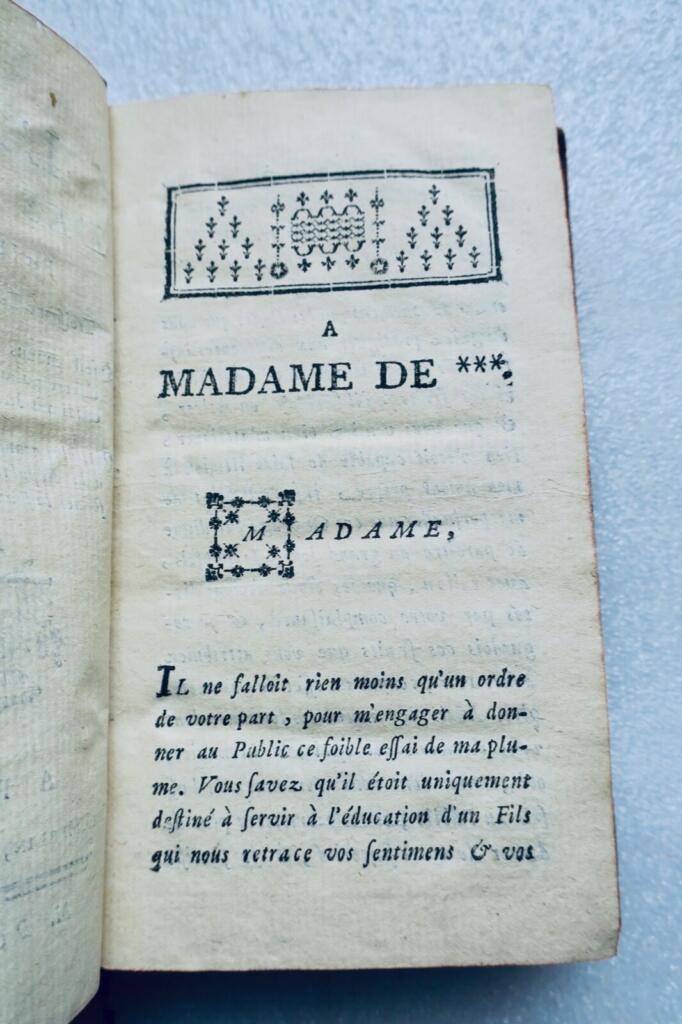 A
MADAME DE ***.
MADAME,
IL ne falloit rien moins qu'un ordre
de votre part, pour m'engager à don-
ner au Public ce foible eſſai de ma plu-
me. Vous ſavez qu'il étoit uniquement
deſtiné à ſervir à l'éducation d'un Fils
qui nous retrace vos ſentimens & vos